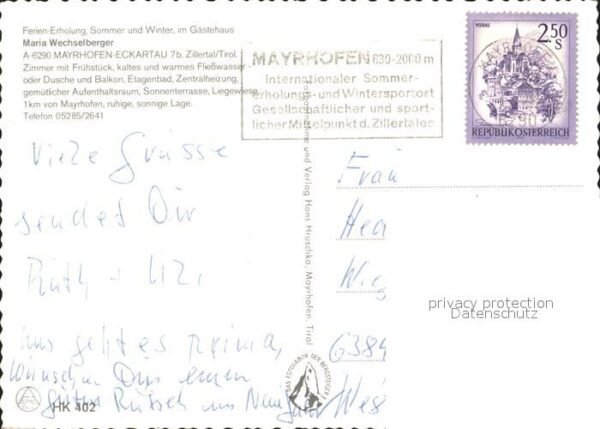 Ferien-Erholung, Sommer und Winter, im Gästehaus
Maria Wechselberger
A-6290 MAYRHOFEN-ECKARTAU 7b, Zillertal/Tirol.
Zimmer mit Frühstück, kaltes und warmes Fließwasser
oder Dusche und Balkon, Etagenbad, Zentralheizung,
gemütlicher Aufenthaltsraum, Sonnenterrasse, Liegewiese
1km von Mayrhofen, ruhige, sonnige Lage.
Telefon 05285/2641
MAYRHOFEN 630-2060 m
Internationaler Sommer-
erholungs- und Wintersportort
Gesellschaftlicher und sport-
licher Mittelpunkt d. Zillertales
MURAU
2.50 S
REPUBLIK ÖSTERREICH
MAYRHOFEN
Viele Grüsse
sendet Dir
Ruth +
uns geht es prima,
wünschen Dir einen
guten Rutsch ins Neujahr
Frau
Hed
Wie
6384
Wes
und Verlag Hans Hruschka, Mayrhofen, Tirol
DAS FOTOLABOR DER BERGSTEIGER
privacy protection
Datenschutz
HK 402